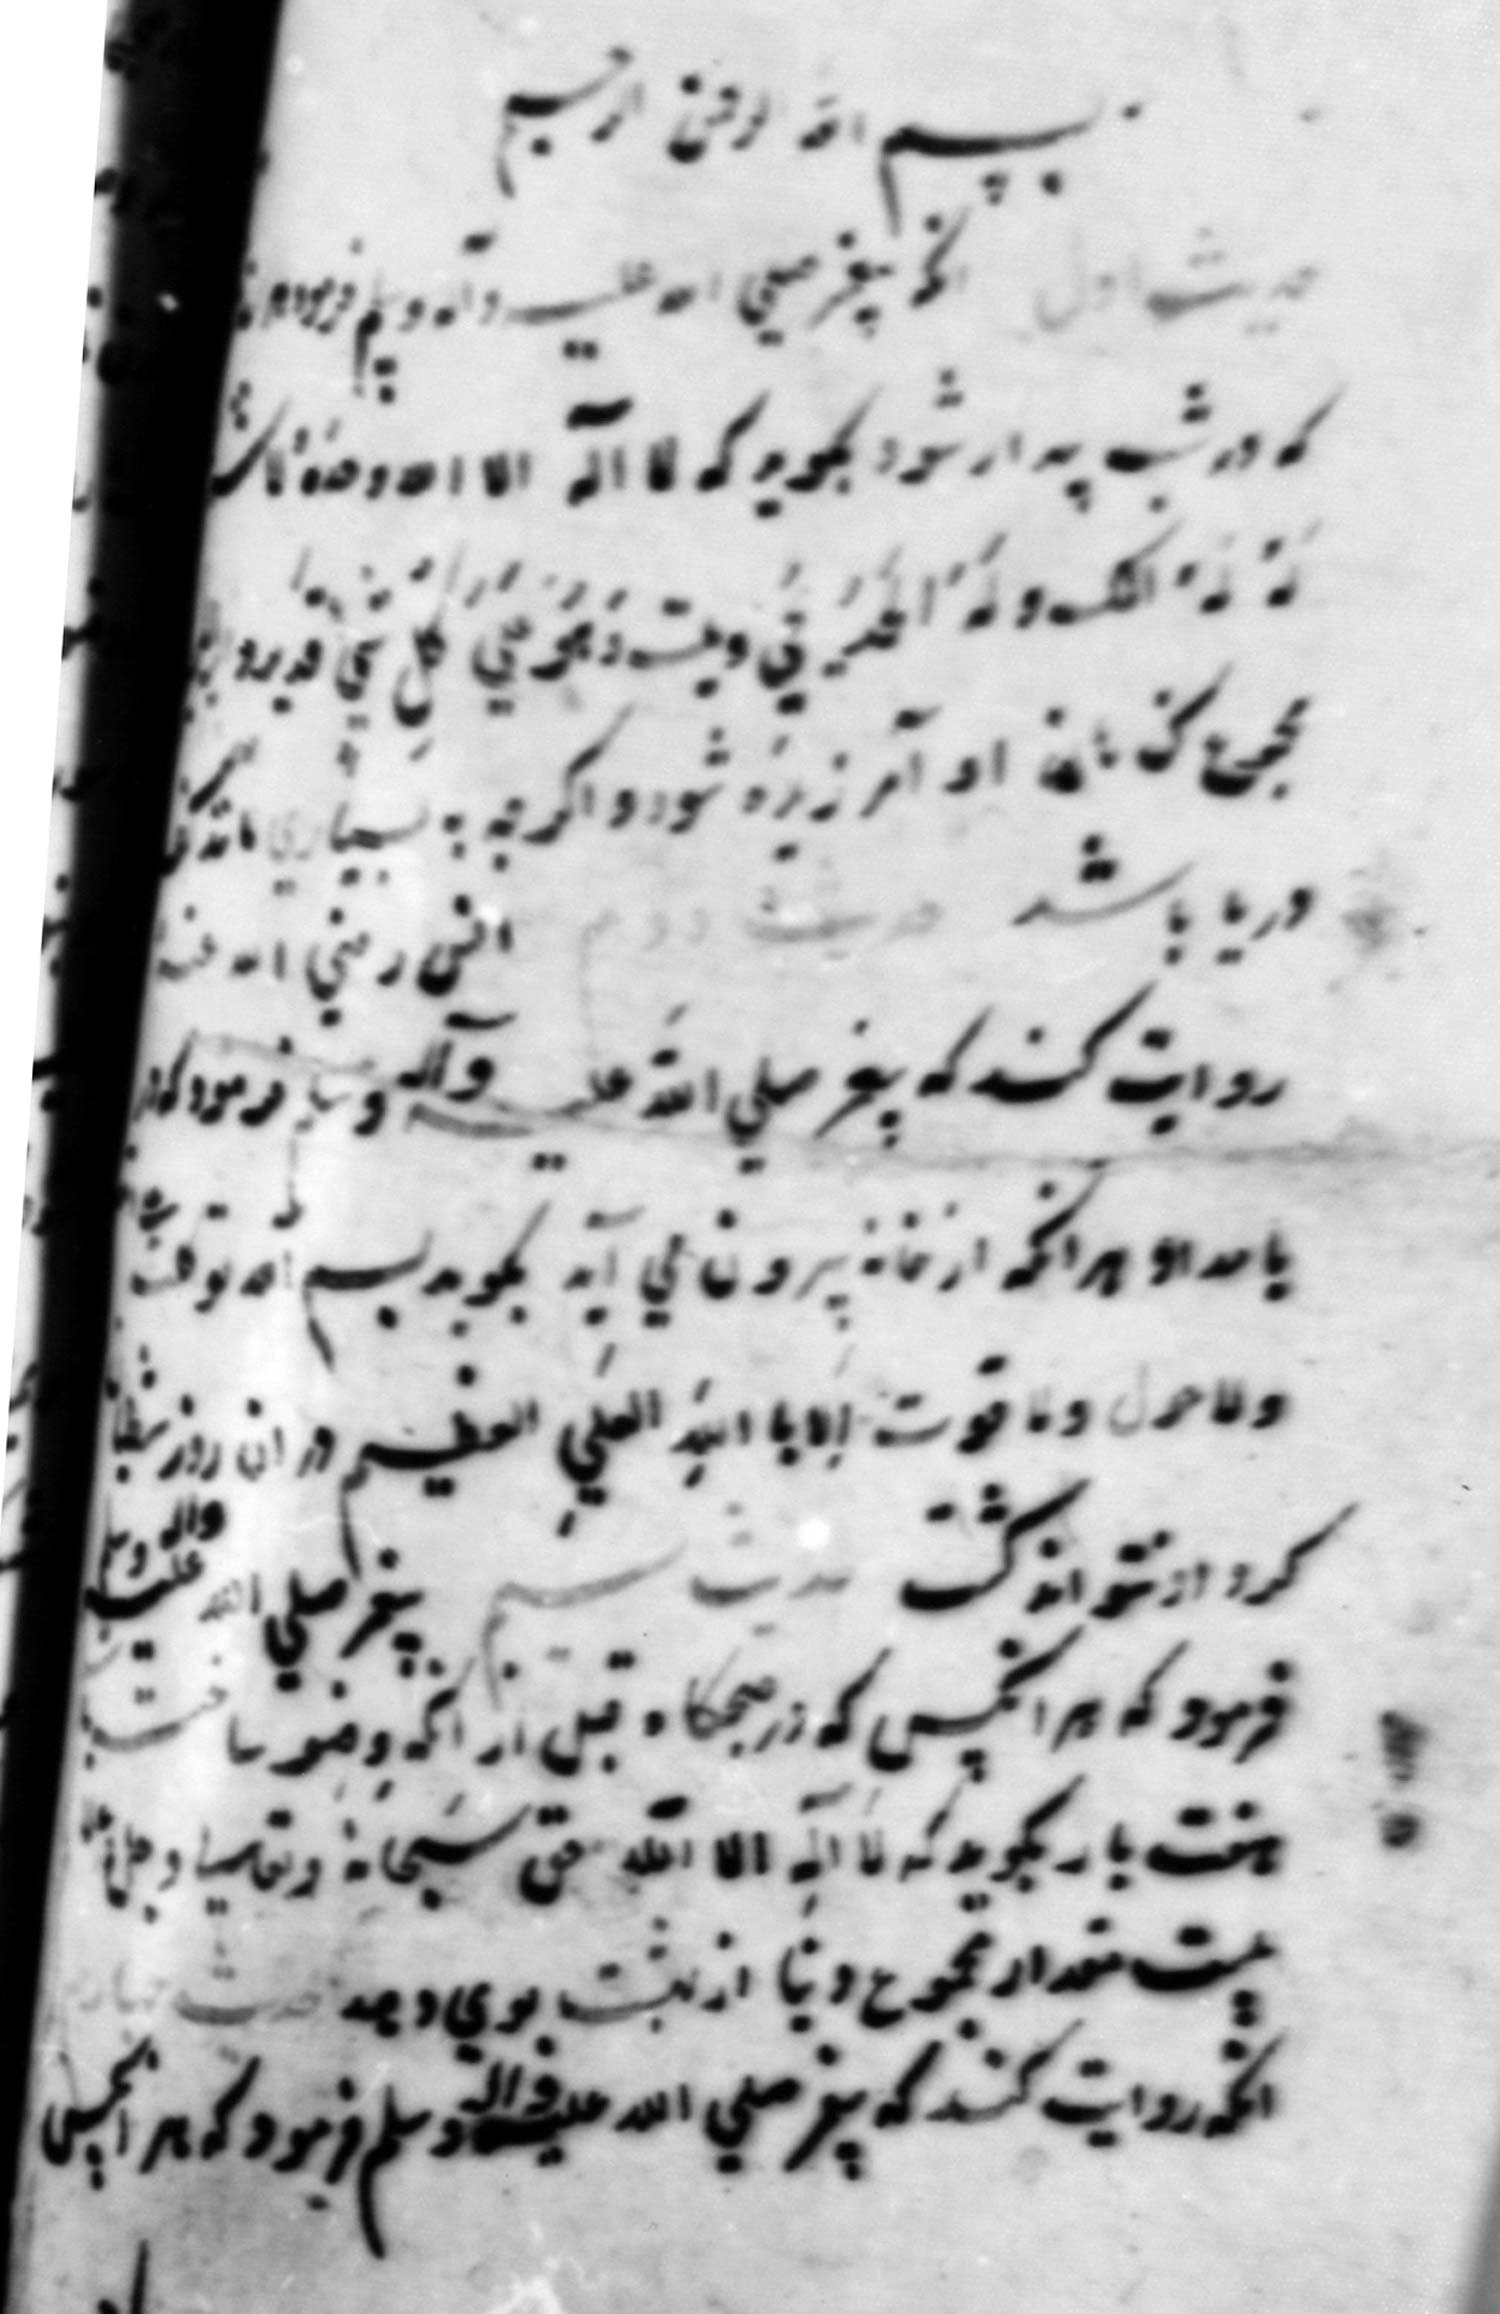 بسم الله الرحمن الرحیم
حدیث اول آنکه پیغمبر صلی الله علیه وآله وسلم فرمود
که در شب بیدار شود بگوید که لا اله الا الله وحده لا شریک
له له الملک وله الحمد یحیی ویمیت وهو علی کل شیء قدیر
مجموع کناهان او آمرزیده شود واگرچه به بسیاری مانند کف
دریا باشد حدیث دوم انس رضی الله عنه
روایت کند که پیغمبر صلی الله علیه وآله وسلم فرمود که در
بامداد هر آنکه از خانه بیرون می آید بگوید بسم الله توکلت
ولا حول ولا قوت الا بالله العلی العظیم در ان روز شیطان
کرد او نتواند گشت حدیث سیم پیغمبر صلی الله علیه واله وسلم
فرمود که هر آنکس که در صبحگاه قبل از آنکه وضو ساخت
هفت بار بگوید که لا اله الا الله حق سبحانه وتعالی
بیست مقدار مجموع دنیا از بهشت بوی دهد حدیث چهارم
آنکه روایت کنند که پیغمبر صلی الله علیه واله وسلم فرمود که هر آنکس